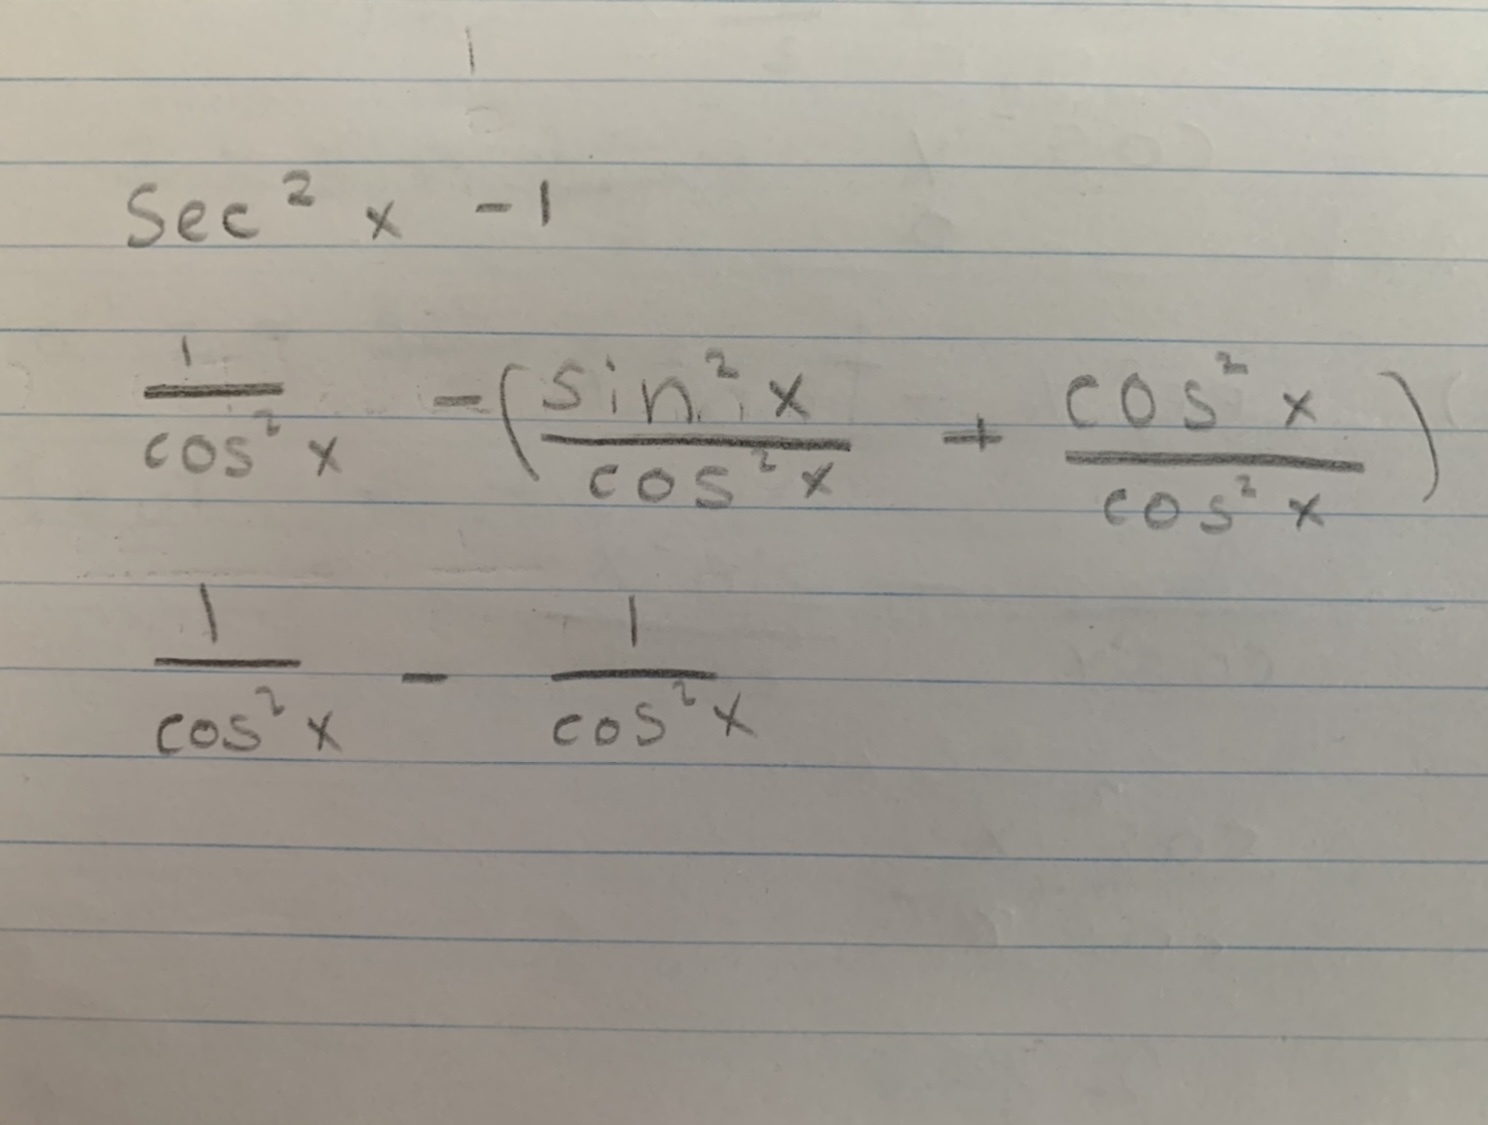 1
Sec² x - 1
1/cos² x - (sin² x/cos² x + cos² x/cos² x)
1/cos² x - 1/cos² x